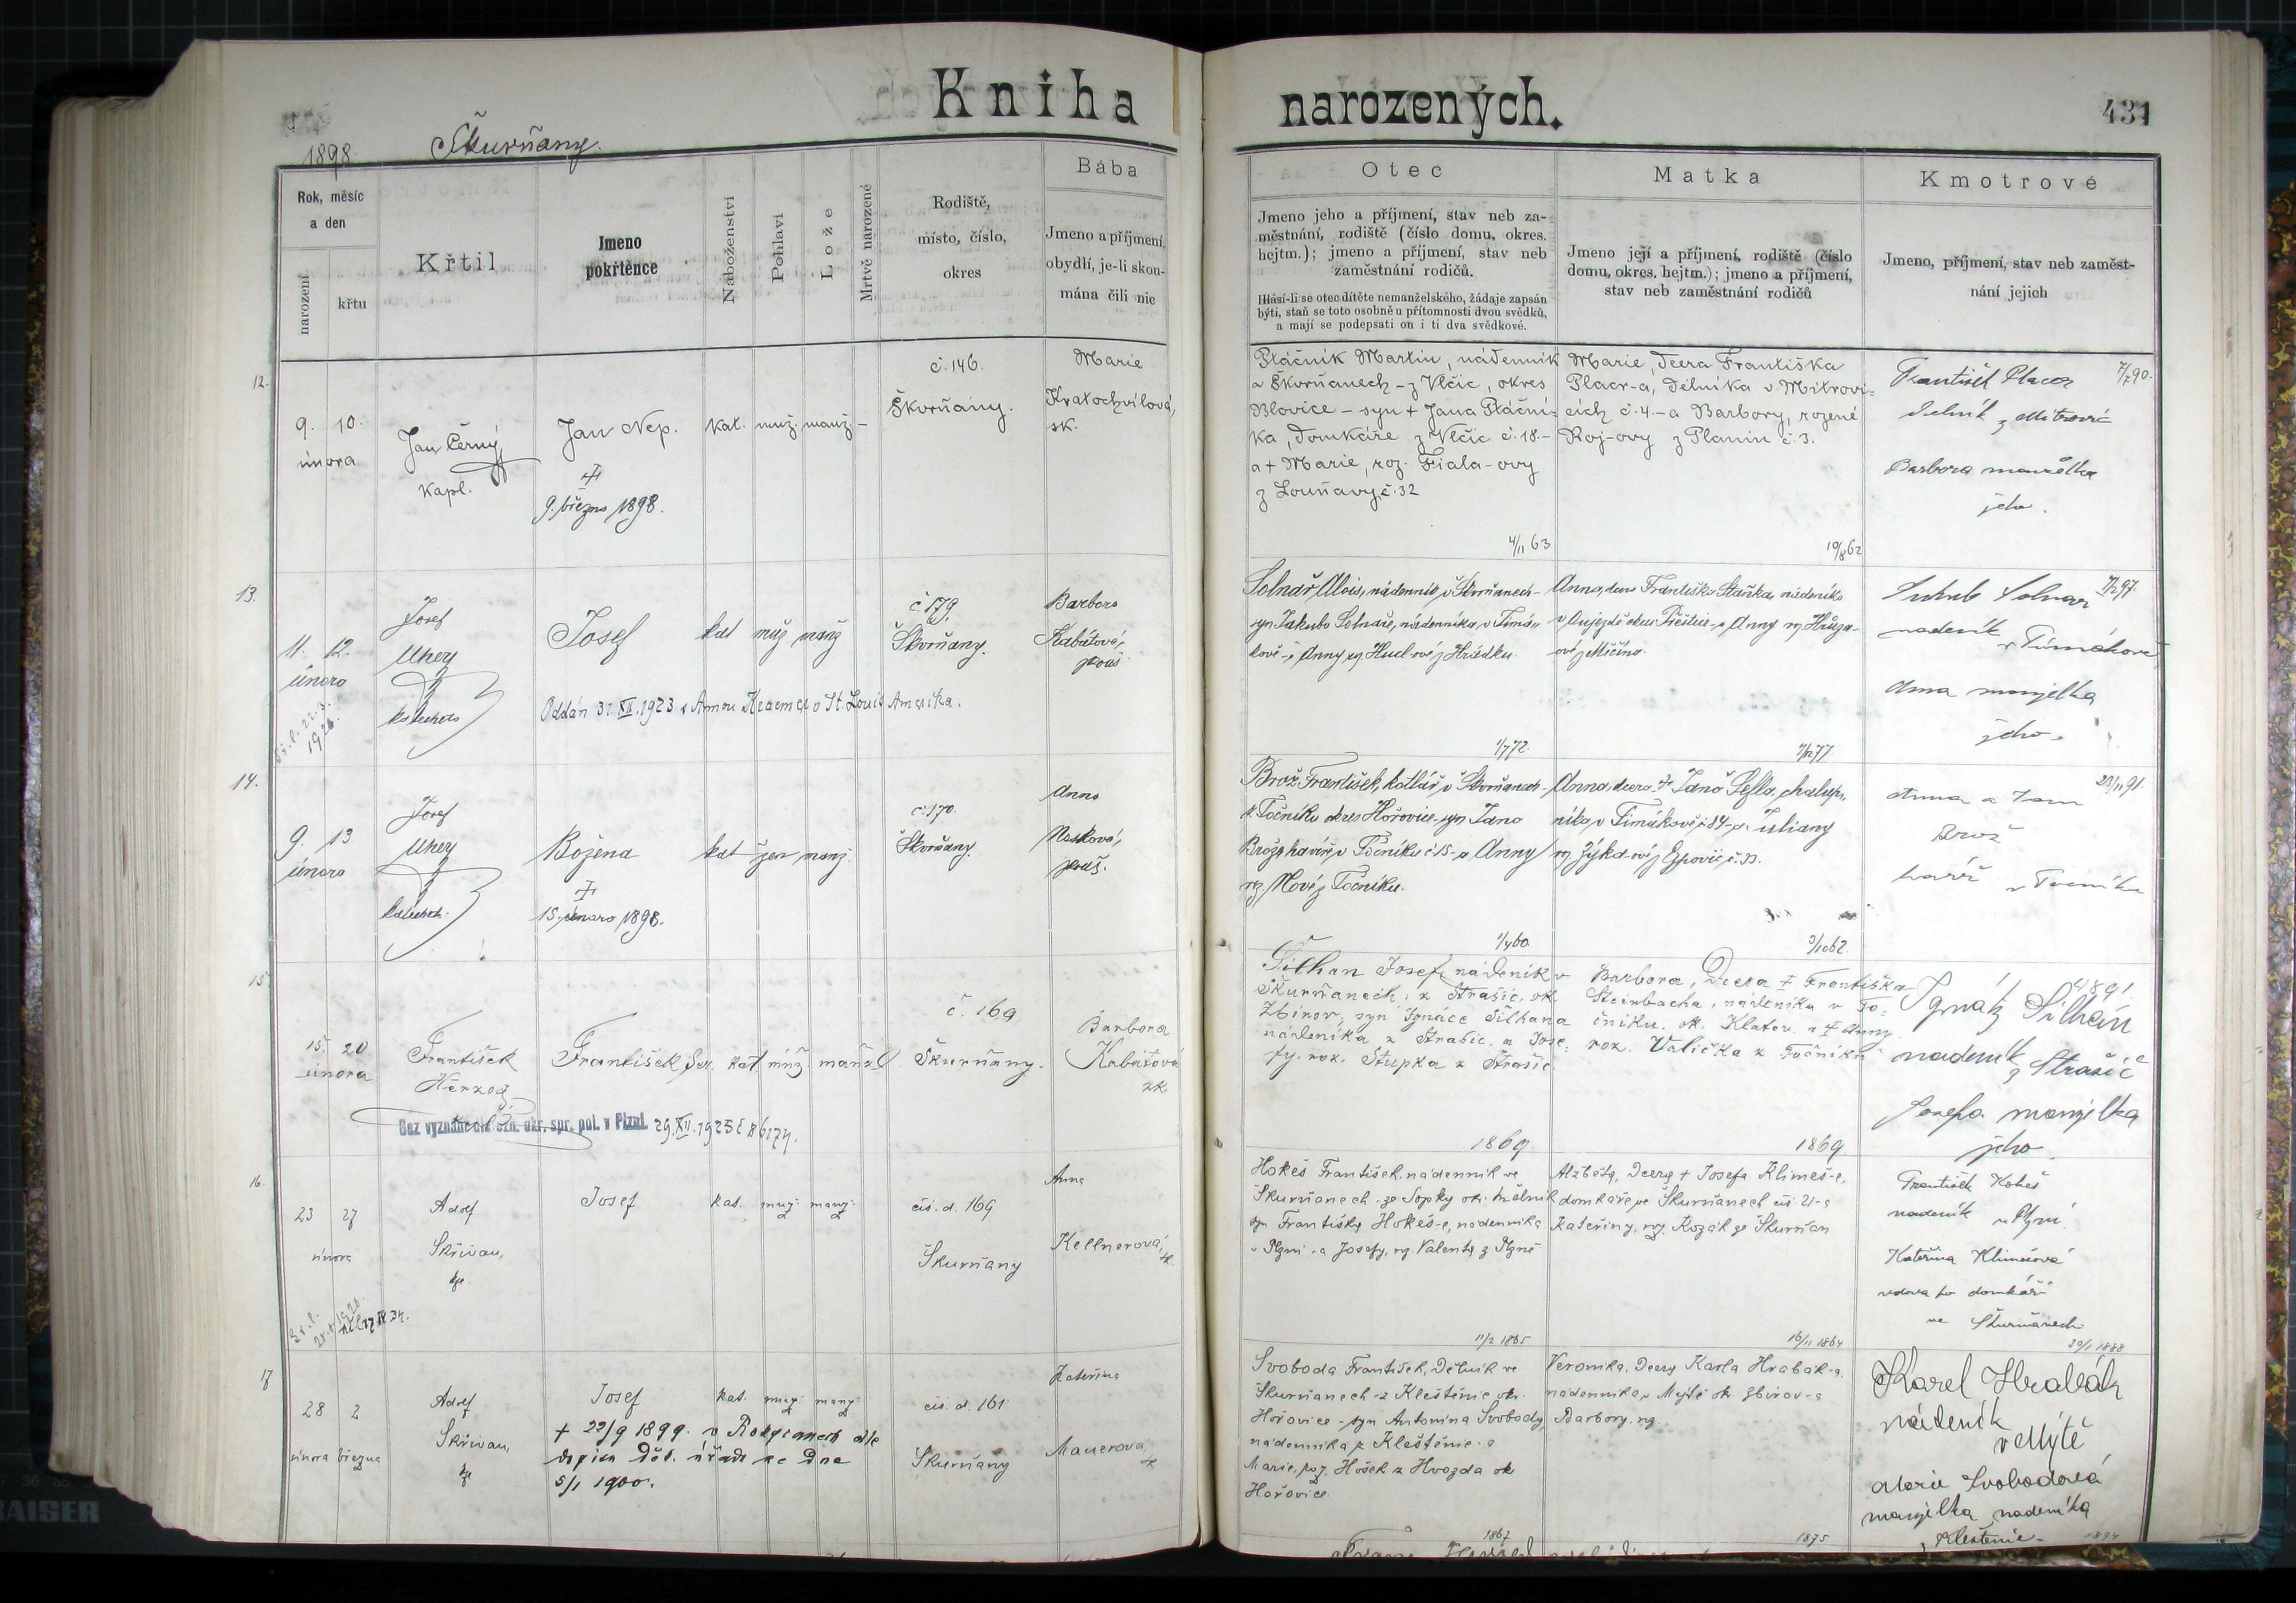 Kniha narozených.
431
1898. Škurňany.
Rok, měsíc
a den
narození
křtu
Křtil
Jmeno
pokřtěnce
Náboženství
Pohlaví
Lože
Mrtvě narozené
Rodiště,
místo, číslo,
okres
Bába
Jmeno a příjmení,
obydlí, je-li skou-
mána čili nic
Otec
Jmeno jeho a příjmení, stav neb za-
městnání, rodiště (číslo domu, okres.
hejtm.); jmeno a příjmení, stav neb
zaměstnání rodičů.
Hlásí-li se otec dítěte nemanželského, žádaje zapsán
býti, staň se toto osobně u přítomnosti dvou svědků,
a mají se podepsati on i ti dva svědkové.
Matka
Jmeno její a příjmení, rodiště (číslo
domu, okres. hejtm.); jmeno a příjmení,
stav neb zaměstnání rodičů
Kmotrové
Jmeno, příjmení, stav neb zaměst-
nání jejich
12.
9. 10.
února
Jan Černý
kapl.
Jan Nep.
9. března 1898.
kat. muž. manž. –
č. 146.
Škvrňany.
Marie
Kratochvílová,
sk.
Ptáčník Martin, nádenník
v Škvrňanech – z Vlčic, okres
Blovice – syn + Jana Ptáční-
ka, domkáře z Vlčic č. 18. –
a + Marie, roz. Fiala-ovy
z Louňavy, č. 32
4/11 63
Marie, dcera Františka
Placr-a, dělníka v Mitrovi-
cích č. 4. – a Barbory, rozené
Roj-ovy z Planin č. 3.
10/8 62
František Placer
dělník z Mitrovic
Barbora manželka
jeho.
13.
11. 12.
února
Josef
Uhey
katecheta
Josef
kat muž manž
č. 179.
Škvrňany.
Barbora
Kabátová,
zkouš.
Oddán 31. XII. 1923 s Annou Kraemer v St. Louis Amerika.
Solnař Alois, nádenník v Škvrňanech –
syn Jakuba Solnaře, nádenníka v Timá-
kově – a Anny roz Hucl-ové z Hrádku.
1/7 72.
Anna, dcera Františka Staňka, nádenníka
v Aujezdě okres Přeštice – a Anny roz Hrůza-
ové z Měčína.
Jakub Solnar
nadeník
v Timákově
Anna manželka
jeho.
14.
9. 13.
února
Josef
Uhey
katechet.
Božena
15. února 1898.
kat žen manž.
č. 170.
Škvrňany.
Anna
Nosková,
zkouš.
Brož František, kotlář v Škvrňanech –
z Točníku okres Hořovice – syn Jana
Brože havíře v Točníku č 15 – a Anny
roz. Nové z Točníku.
Anna, dcera + Jana Šefla, chalup-
níka v Timákově č. 84 – a Juliany
roz Zýka-ové z Ejpovic, č. 33.
Anna a Jan
Brož
havíř v Točníku
15
15. 20
února
František
Herzog
František Ser. kat muž. manžel
č. 169
Škurňany.
Barbora
Kabátová
zk.
Bez vyznání dle ozn. okr. spr. pol. v Plzni. 29. XII. 1925 č 86174.
Šilhan Josef, nádeník v
Škurňanech, z Strašic, ok.
Zbirov, syn Ignáce Šilhana
nádeníka z Strašic. a Jose-
fy. roz. Stupka z Strašic
1869
Barbora, dcera + Františka
Steinbacha, nádeníka v To-
čníku. ok. Klatov. a + Anny
roz. Valička z Točníku
1869
Ignátz Šilhán
nadeník z Strašic
Josefa manželka
jeho
16
23 27
února
Adolf
Skřivan,
Josef
kat. muž. manž.
čís. d. 169
Škurňany
Anna
Kellnerová,
zk.
Hokeš František, nádenník ve
Škurňanech – ze Sopky ok. Mělník
syn Františka Hokeš-e, nádenníka
v Plzni – a Josefy, roz. Valenta z Plzně
11/2 1865
Alžběta, dcera + Josefa Klimeš-e,
domkáře ve Škurňanech čís. 21 – a
Kateřiny, roz. Kozák ze Škurňan
16/11 1864
František Hokeš
nadeník v Plzni.
Kateřina Klimešová
vdova po domkáři
ve Škurňanech
17
28 2
února března
Adolf
Skřivan,
Josef
kat. muž. manž.
+ 22/9 1899. v Rokycanech dle
dopisu Děk. úřadu ze dne
5/1 1900.
čís. d. 161
Škurňany
Kateřina
Mauerova
zk
Svoboda František, dělník ve
Škurňanech – z Kleštěnic ok.
Hořovice – syn Antonína Svobody,
nádenníka z Kleštěnic – a
Marie, roz. Hošek z Hvozda ok.
Hořovice.
1867
Veronika, dcera Karla Hrabák-a,
nádenníka v Mýtě ok. Zbirov – a
Barbory, roz.
1875
30/1 1888
Karel Hrabák
nádeník
v Mýtě
Marie Svobodová
manželka nadeníka
z Kleštěnic